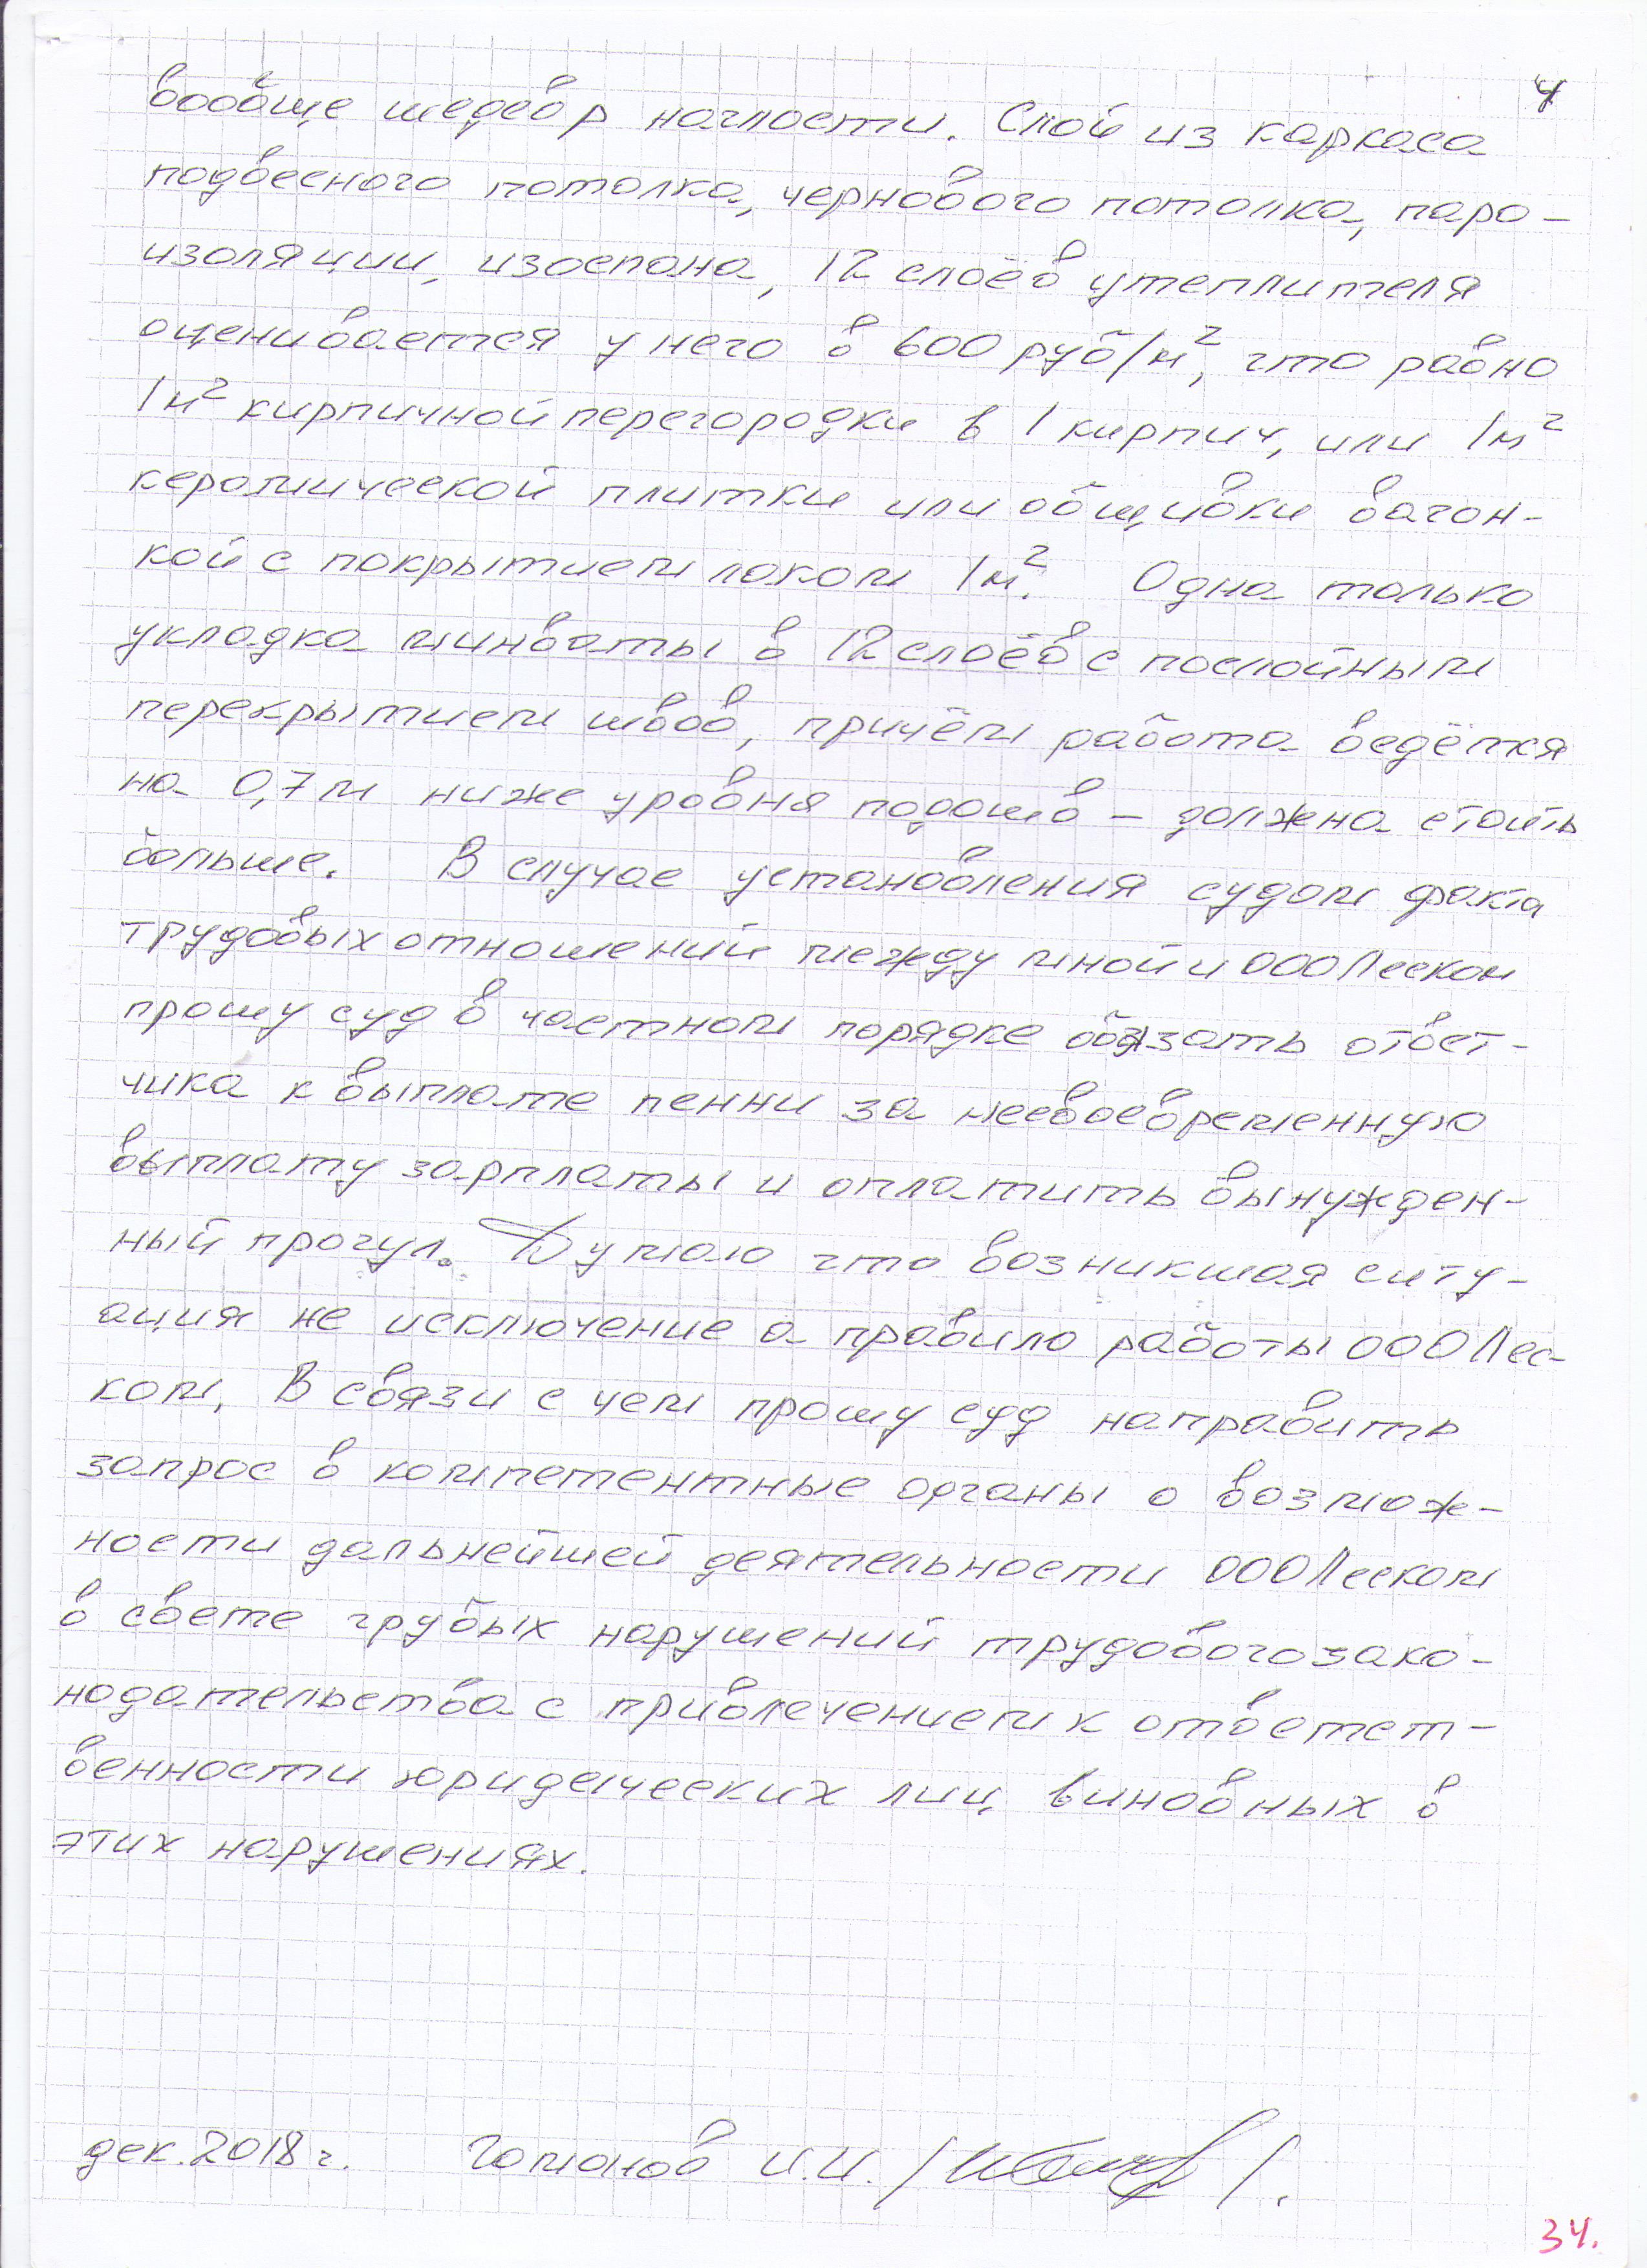 4
вообще шедевр наглости. Слой из каркаса
подвесного потолка, чернового потолка, паро-
изоляции, изоспана, 12 слоёв утеплителя
оценивается у него в 600 руб/м², что равно
1м² кирпичной перегородки в 1 кирпич, или 1м²
керамической плитки или общивки вагон-
кой с покрытием лаком 1м². Одна только
укладка минваты в 12 слоёв с послойным
перекрытием швов, причём работа ведётся
на 0,7 м ниже уровня подошв – должна стоить
больше. В случае установления судом факта
трудовых отношений между мной и ООО Леском
прошу суд в частном порядке обязать ответ-
чика к выплате пенни за несвоевременную
выплату зарплаты и оплатить вынужден-
ный прогул. Думаю что возникшая ситу-
ация не исключение а правило работы ООО Лес-
ком, В связи с чем прошу суд направить
запрос в компетентные органы о возмож-
ности дальнейшей деятельности ООО Леском
в свете грубых нарушений трудового зако-
нодательства с привлечением к ответст-
венности юридических лиц виновных в
этих нарушениях.
дек. 2018 г. И.И. / /.
34.